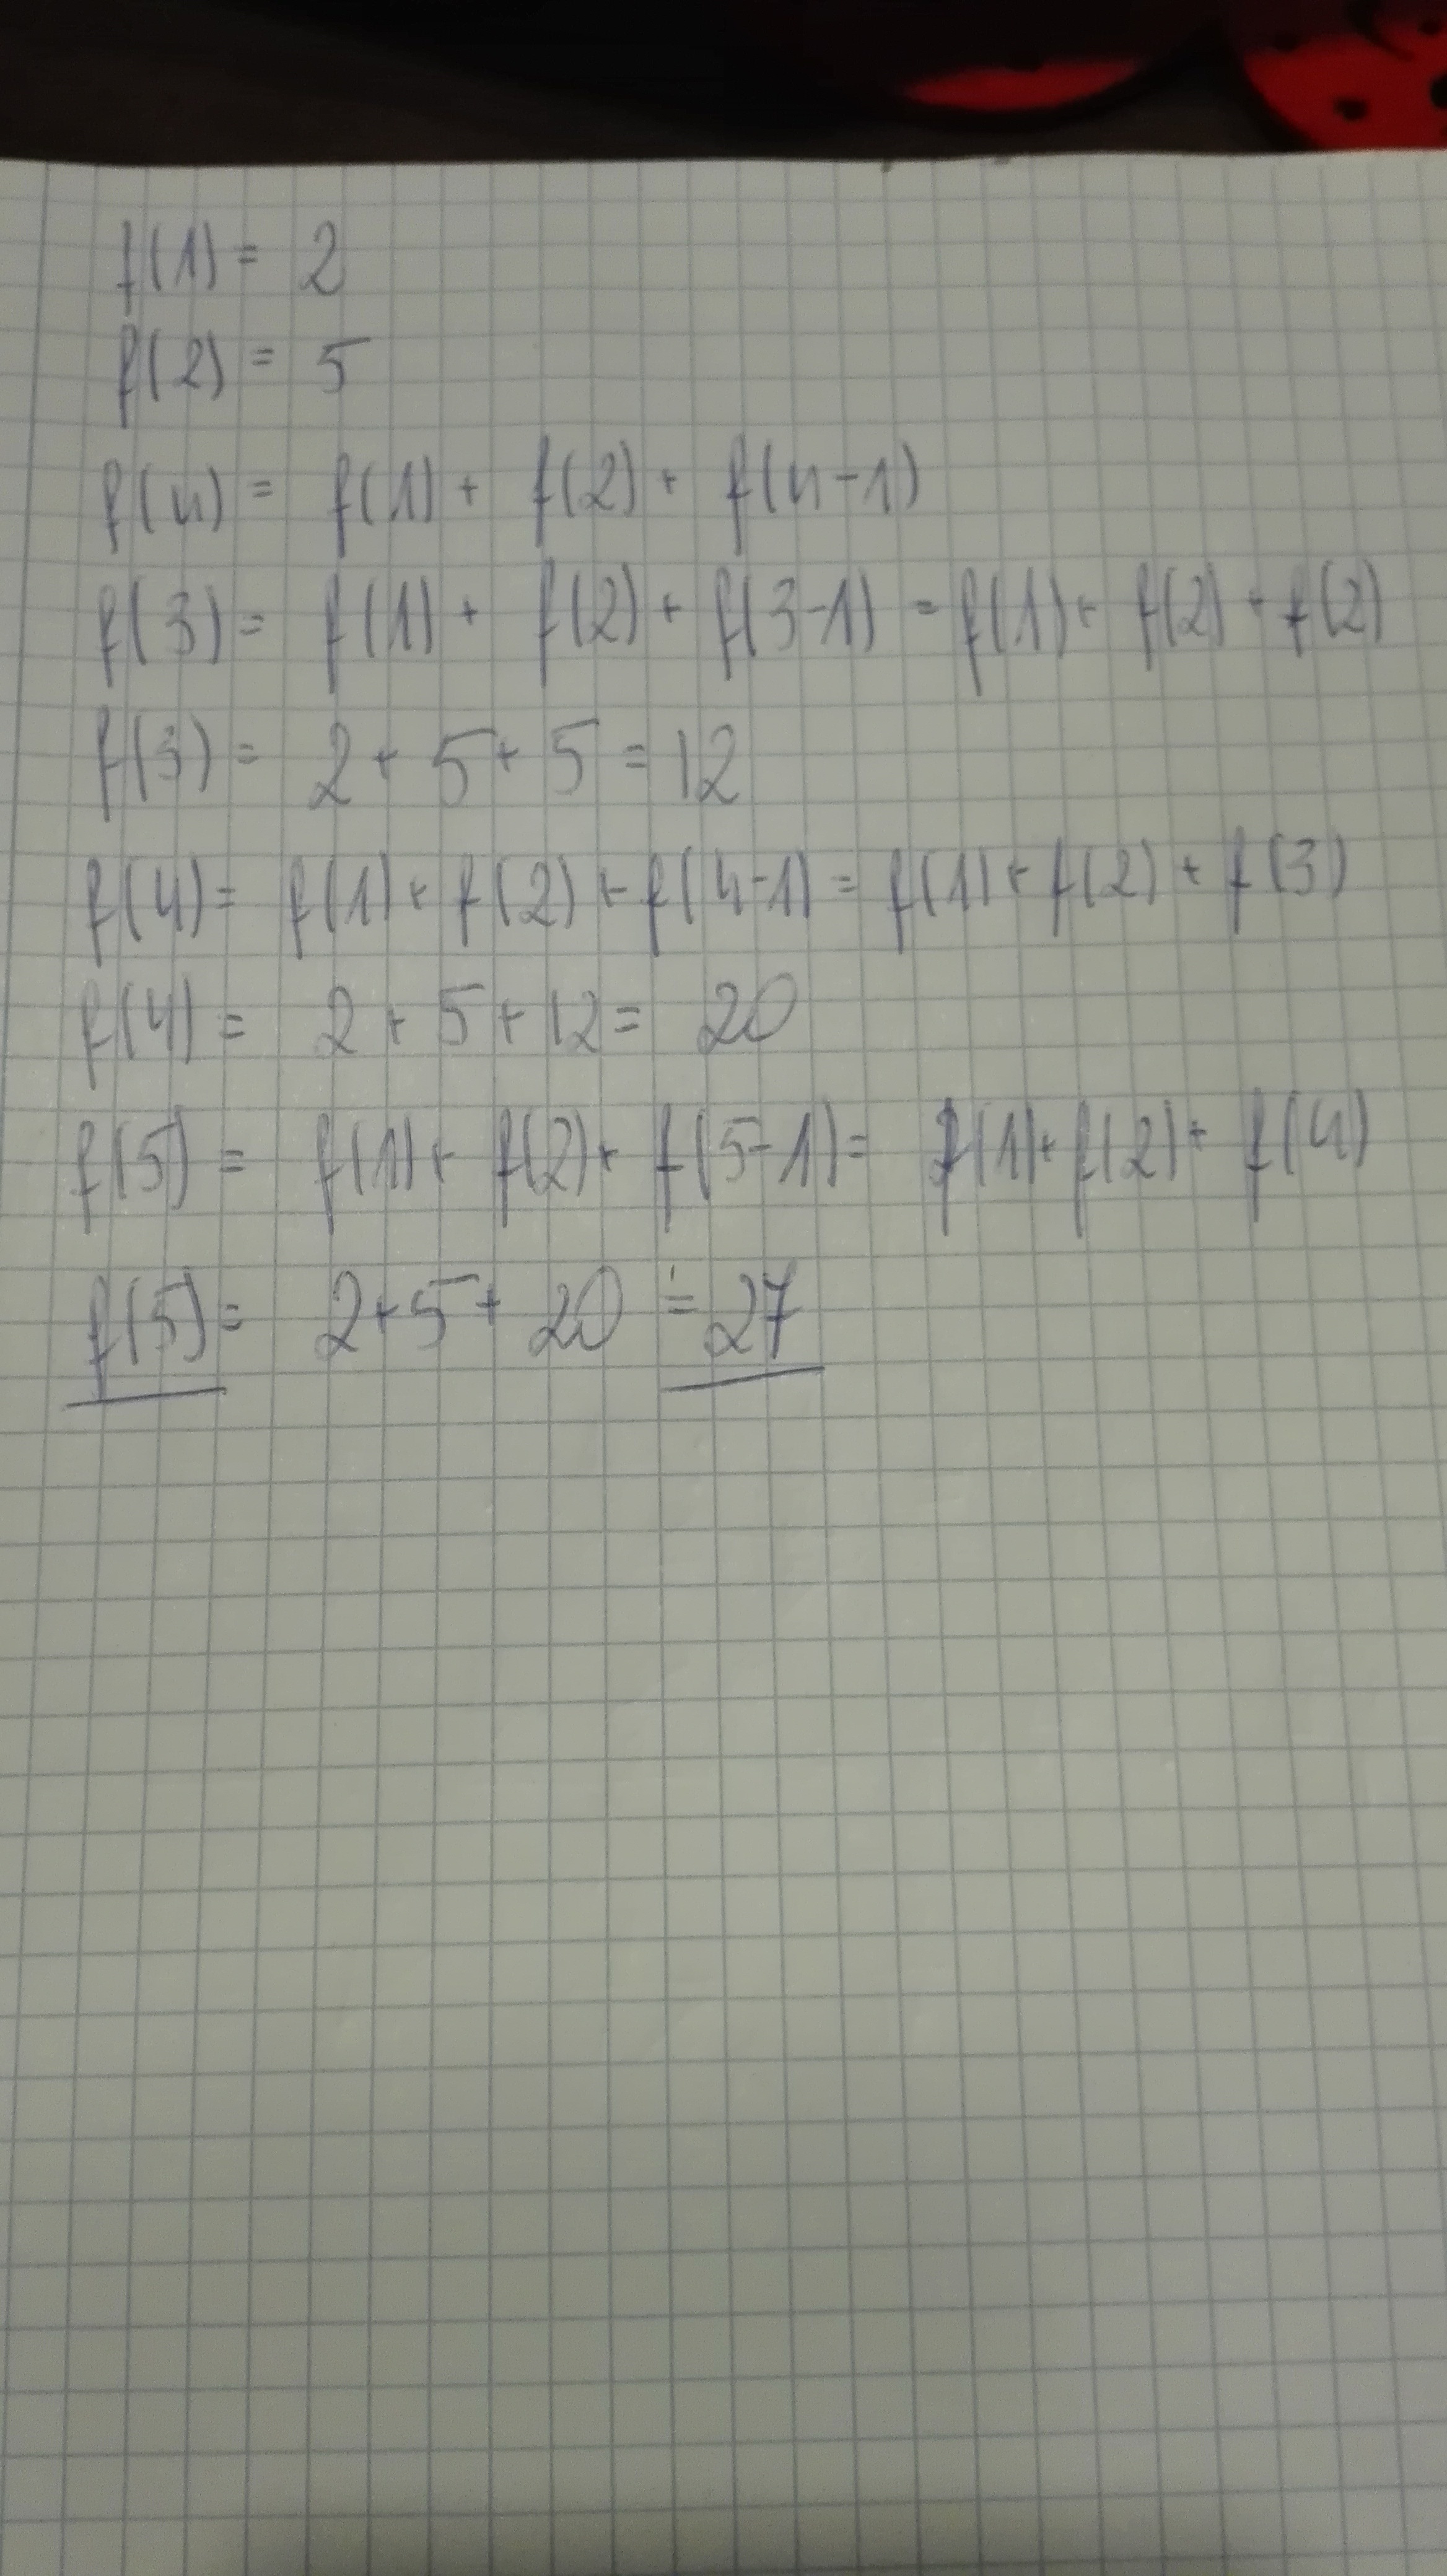 f(1) = 2
f(2) = 5
f(n) = f(1) + f(2) + f(n-1)
f(3) = f(1) + f(2) + f(3-1) = f(1) + f(2) + f(2)
f(3) = 2 + 5 + 5 = 12
f(4) = f(1) + f(2) + f(4-1) = f(1) + f(2) + f(3)
f(4) = 2 + 5 + 12 = 20
f(5) = f(1) + f(2) + f(5-1) = f(1) + f(2) + f(4)
f(5) = 2 + 5 + 20 = 27